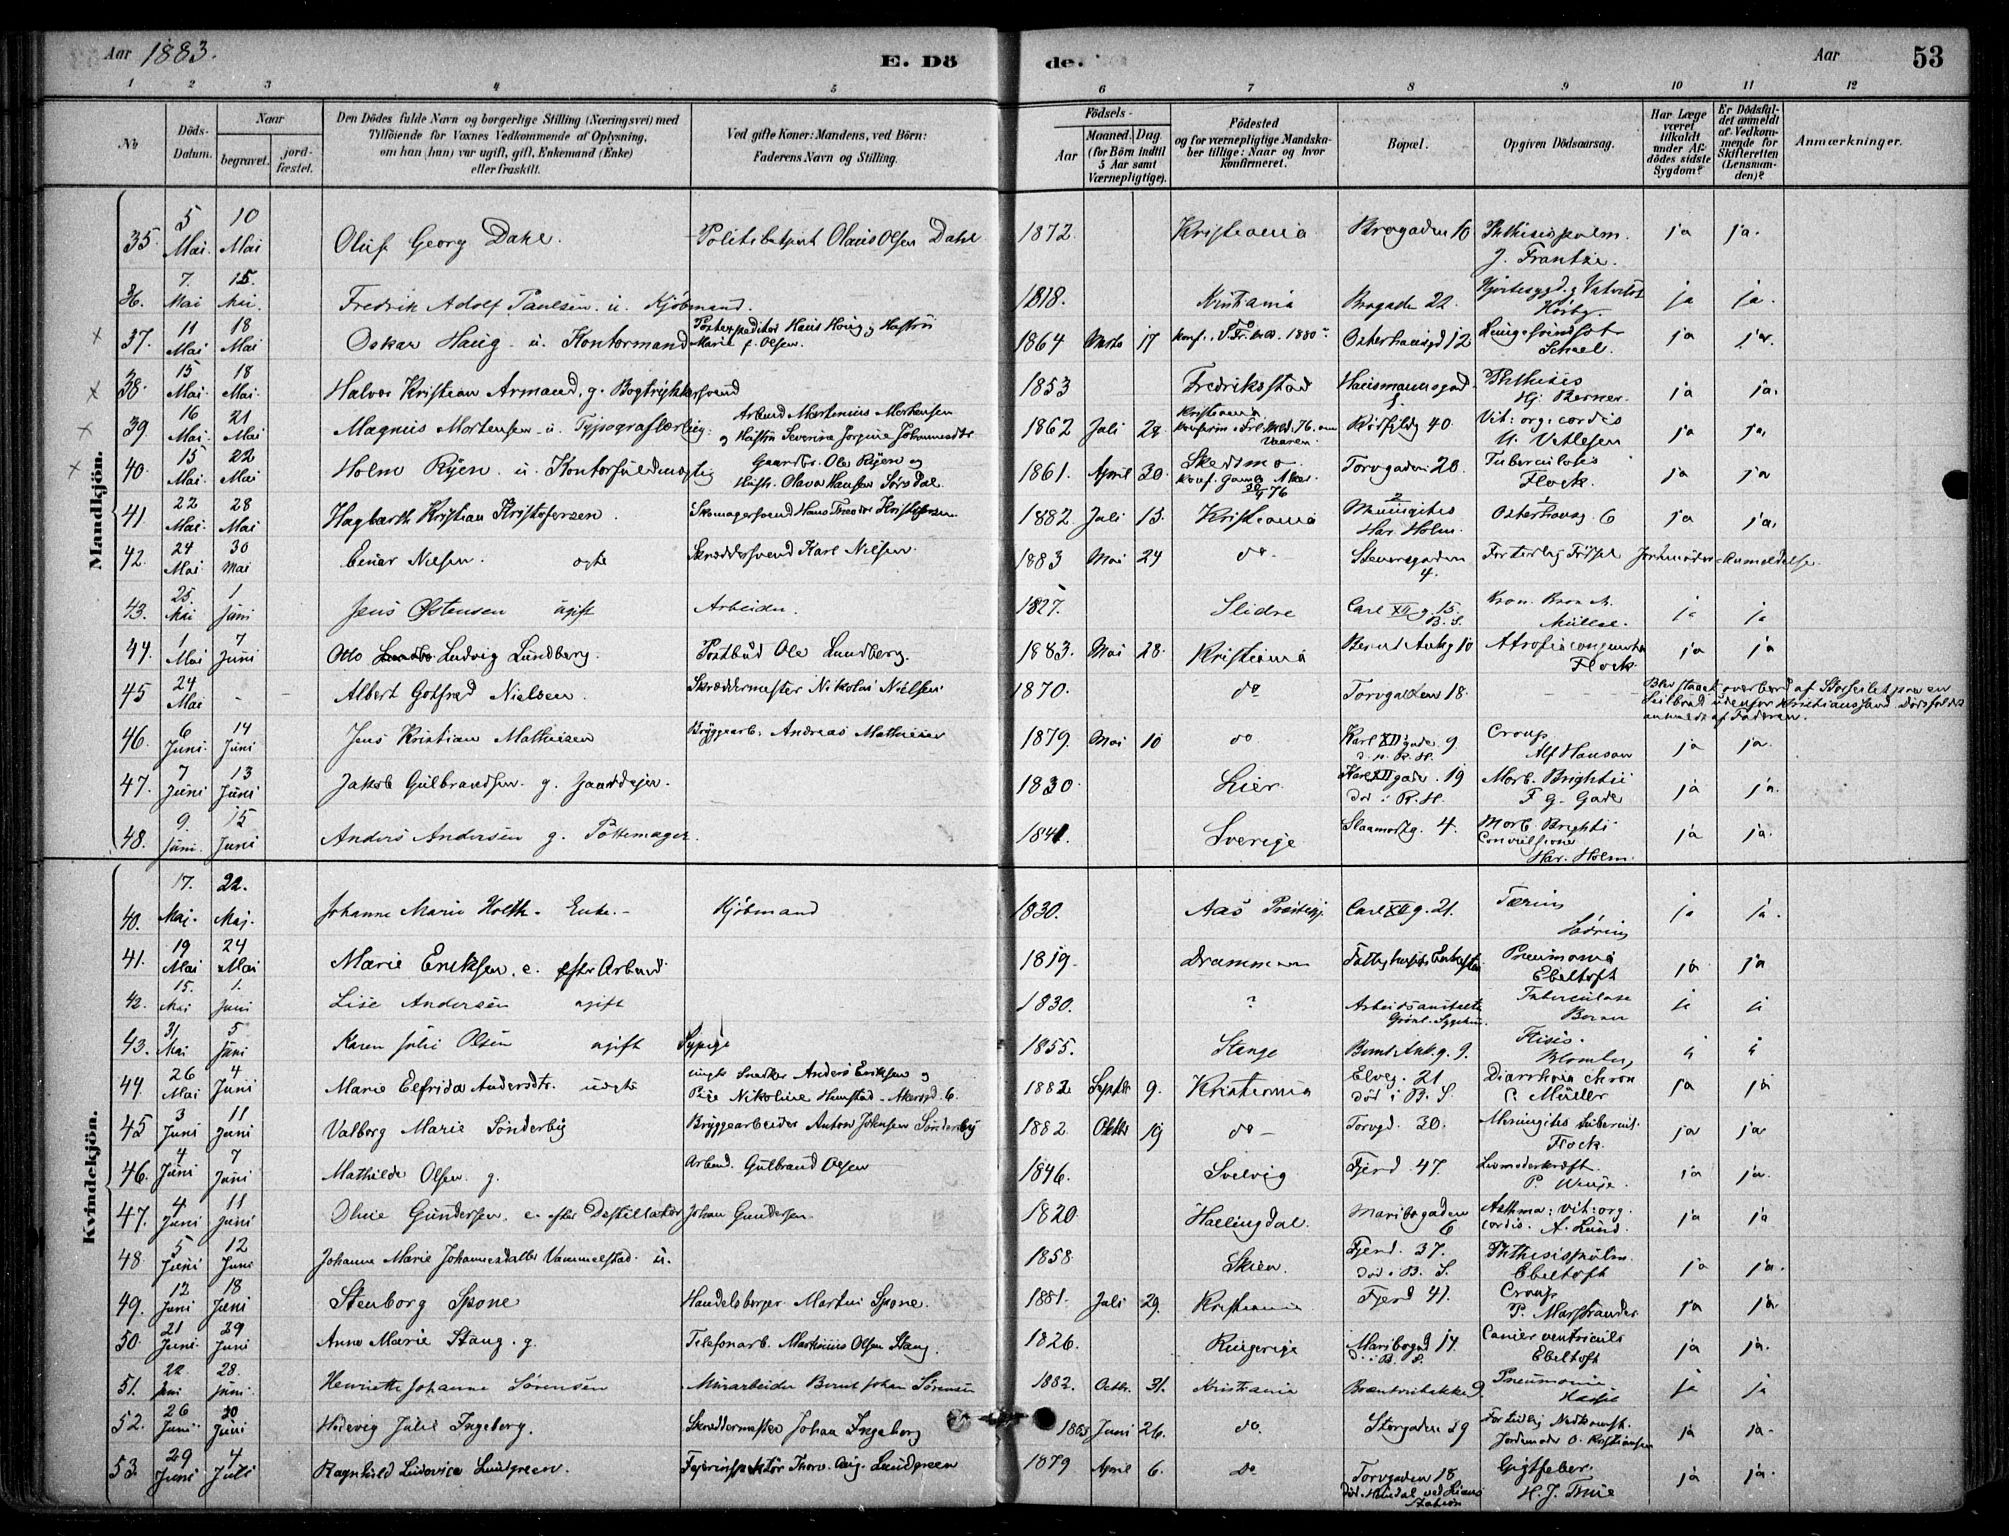 Aar 1883. E. Dö de. Aar 53
1 2 3 4 5 6 7 8 9 10 11 12
No Döds-Datum. Naar begravet. jordfæstet. Den Dödes fulde Navn og borgerlige Stilling (Næringsvei) med Tilföiende for Voxnes Vedkommende af Oplysning, om han (hun) var ugift, gift, Enkemand (Enke) eller fraskilt. Ved gifte Koner: Mandens, ved Börn: Faderens Navn og Stilling. Födsels- Aar Maaned. Dag. (for Börn indtil 5 Aar samt Værnepligtige). Födested og for værnepligtige Mandskaber tillige: Naar og hvor konfirmeret. Bopæl. Opgiven Dödsaarsag. Har Læge været tilkaldt under Afdödes sidste Sygdom? Er Dödsfaldet anmeldt af Vedkommende for Skifteretten (Lensmanden)? Anmærkninger.
Mandkjön.
35. 5 Mai. 10 Mai Oluf Georg Dahl. Politibetjent Olaus Olsen Dahl 1872. Kristiania Brogaden 10 Phthisis pulm. J. Frantze. ja ja.
36. 7. Mai 15. Mai. Fredrik Adolf Paulsen. u. Kjöbmand. 1818. Kristiania Brogaden 22. ja ja.
37. 11 Mai 18 Mai Oskar Haug u. Kontormand Marie f. Olsen. 1864 17 Osterhausgd 12 ja ja.
38. 15 Mai. 18 Mai. Halvor Kristian Armand, g. Bogtrykkersvend 1853 Fredriksstad Hausmannsgad. Phthisis Hj. Berner. ja ja.
39. 16 Mai. 21 Mai Magnus Mortensen u. Typograflærling. Arbmd Martinius Mortensen og Hustru Severine Jorgine 1862 Juli 24 Kristiania 40. Vit: org: cordis U. Vetlesen ja ja.
40. 15 Mai. 22 Mai Holm Röjen. u. Kontorfuldmægtig Gaardbr. Ole Röjen og Hustr. Olava Hansen 1861. April 30. Skedsmo konf. Gamle Aker 76 Torvgaden 20. Tuberculosis Flock. ja ja
41 22 Mai. 28 Mai Hagbarth Kristian Kristofersen. Skomagersvend Hans Theodor Kristofersen 1882. Juli 13. Kristiania Meningitis Har. Holm. Osterhausg. 6 ja ja.
42. 24 Mai 30 Mai Einar Nielsen. ægte Skræddersvend Karl Nielsen. 1883 Mai 24 do. Steversgaden 4. For tidlig Födsel Jordmoder-Anmeldelse
43. 25. Mai 1 Juni Jens Östensen ugift Arbeider. 1827. Slidre Carl XII g. 15. B. S. Kron. Bron. Müller. ja ja
44. 1 Mai 7 Juni Otto Ludvig Lundberg. Postbud Ole Lundberg. 1883. Mai 28. Kristiania Bernt Ankg 10 Atrofia congenita Flock ja ja
45 24 Mai - Albert Gotfred Nielsen. Skræddermester Nikolai Nielsen 1870. do Torvgaden 18. Blev slaaet overbord af Storseilet paa en Seilbaad udenfor Kristianssand Dödsfaldet anmeldt af Faderen.
46. 6 Juni. 14 Juni Jens Kristian Mathisen Bryggearb. Andreas Mathisen 1879. Mai 10 do Karl XII gade. 9. d. p. R. H. Croup Alf Hansan ja ja.
47. 7 Juni 13 Juni Jakob Gulbrandsen. g. Gaardejer. 1830. Lier. Karl XII gade. 19 död i R. H. Morb. Brightii F. G. Gade ja ja.
48. 9. Juni 15 Juni Anders Andersen g. Pottemager. 1841. Sverige. 4. Morb. Brightii Convulsione Har. Holm. ja ja.
Kvindekjön.
40. 17. Maj. 22. Maj. Johanne Marie Holth. Enke. Kjöbmand 1830. Aas Præstegj. Carl XII g. 21. ja ja.
41. 19 Mai 24 Mai Marie Eriksen. e. efter Arbmd. 1819. Drammen Pneumonia Ebeltoft ja ja
42. 15. Mai 1. Juni Lise Andersen ugift 1830. ? Arbeidsanstalten Grönl. Sygehus. Tuberculose Berner ja ja
43. 31 Mai 5 Juni Karen Julie Olsen ugift Sypige 1855. Stange Bernt Ank. g. 9. Ftisis. ja ja
44. 26 Mai 4 Juni Marie Elfrida Andersdtr. uægte ungk Snedker Anders Eriksen og Pige Nikoline 1882 Septbr 9. Kristiania Elveg. 21 död i B. S. Diarrhoia chron C. Müller ja ja
45 3 Juni 11 Juni Valborg Marie Sönderby Bryggearbeider Anton Johansen Sönderby 1882 Oktbr 19 do - Torvgd. 30. Meningitis tubercul. Flock. ja ja
46. 4 Juni 7 Juni Mathilde Olsen. g. Arbmd. Gulbrand Olsen 1846. Svelvig Fjerd. 47. P. Winge. ja ja.
47. 4 Juni 11 Juni Olivie Gundersen. e. efter Destillatör Johan Gundersen 1820 Hallingdal. Maribogaden 6 Asthma: vit: org. cordis. A. Lund. ja ja
48. 5 Juni 12 Juni Johanne Marie Johannesdatter Vammelstad u. 1858 Skien. Fjerd. 37. död i B. S. Phthisis pulm. Ebeltoft ja ja.
49. 12 Juni 18 Juni Stenborg Spone Handelsborger Martin Spone. 1881. Juli 29. Kristiania Fjerd 41. Croup P. Marstrander ja ja.
50. 21 Juni. 29 Juni Anne Marie Stang. g. Telefonarb. Martinius Olsen Stang. 1826. Ringerige Maribogd 14. D. i B. S. Cancer ventriculi Ebeltoft ja ja.
51. 22 Juni 28. Juni. Henriette Johanne Sörensen Murarbeider Bernt Johan Sörensen 1882. Octbr. 31. Kristiania 9. Pneumonia ja ja
52. 26 Juni 30 Juni Hedevig Julie Ingeborg. Skræddermester Johan Ingeborg 1883 Juni 26. do. Storgaden 29 For tidlig Nedkomst. Jordemoder O. Kristiansen ja ja.
53. 29 Juni 4 Juli Ragnhild Ludovica Lundgreen. Fyrinspektör Thorv. Aug. Lundgreen 1879 April 6. do Torvgaden 18 ved Lians Station Gigtfeber. H. J. Thue ja ja.